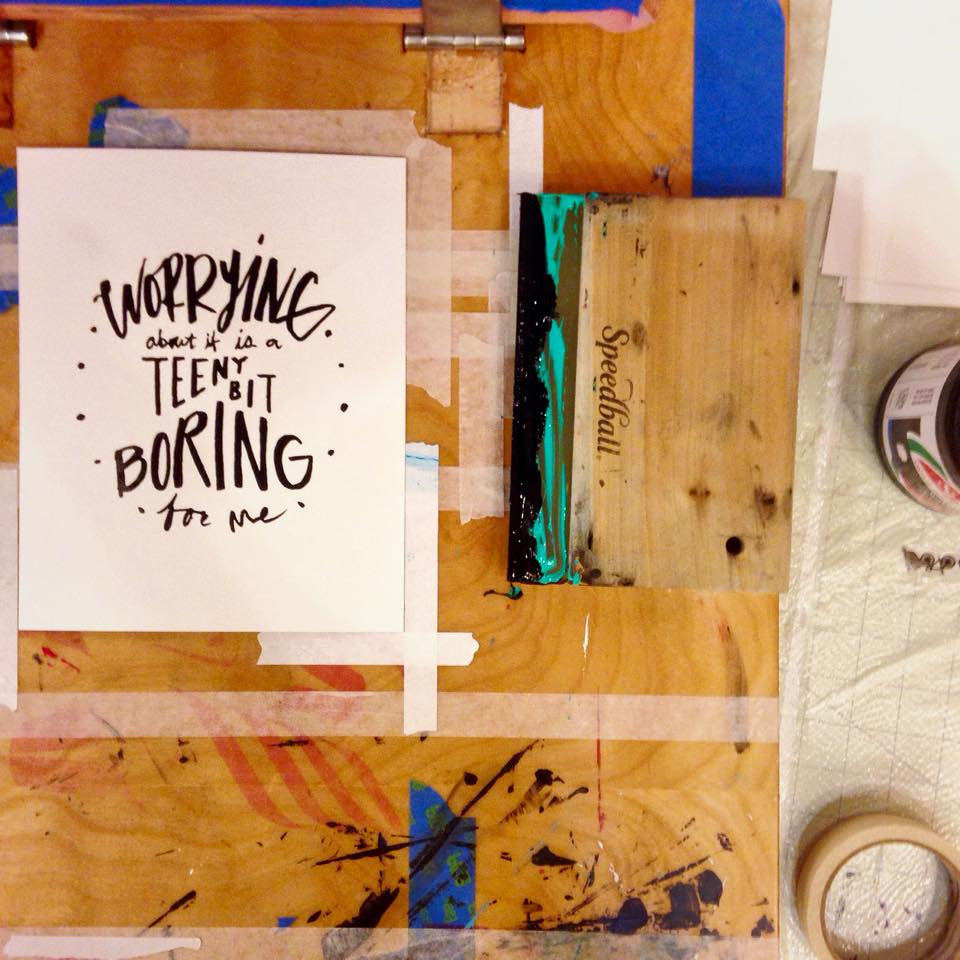 WORRYING
about it is a
TEENY BIT
BORING
for me
Speedball